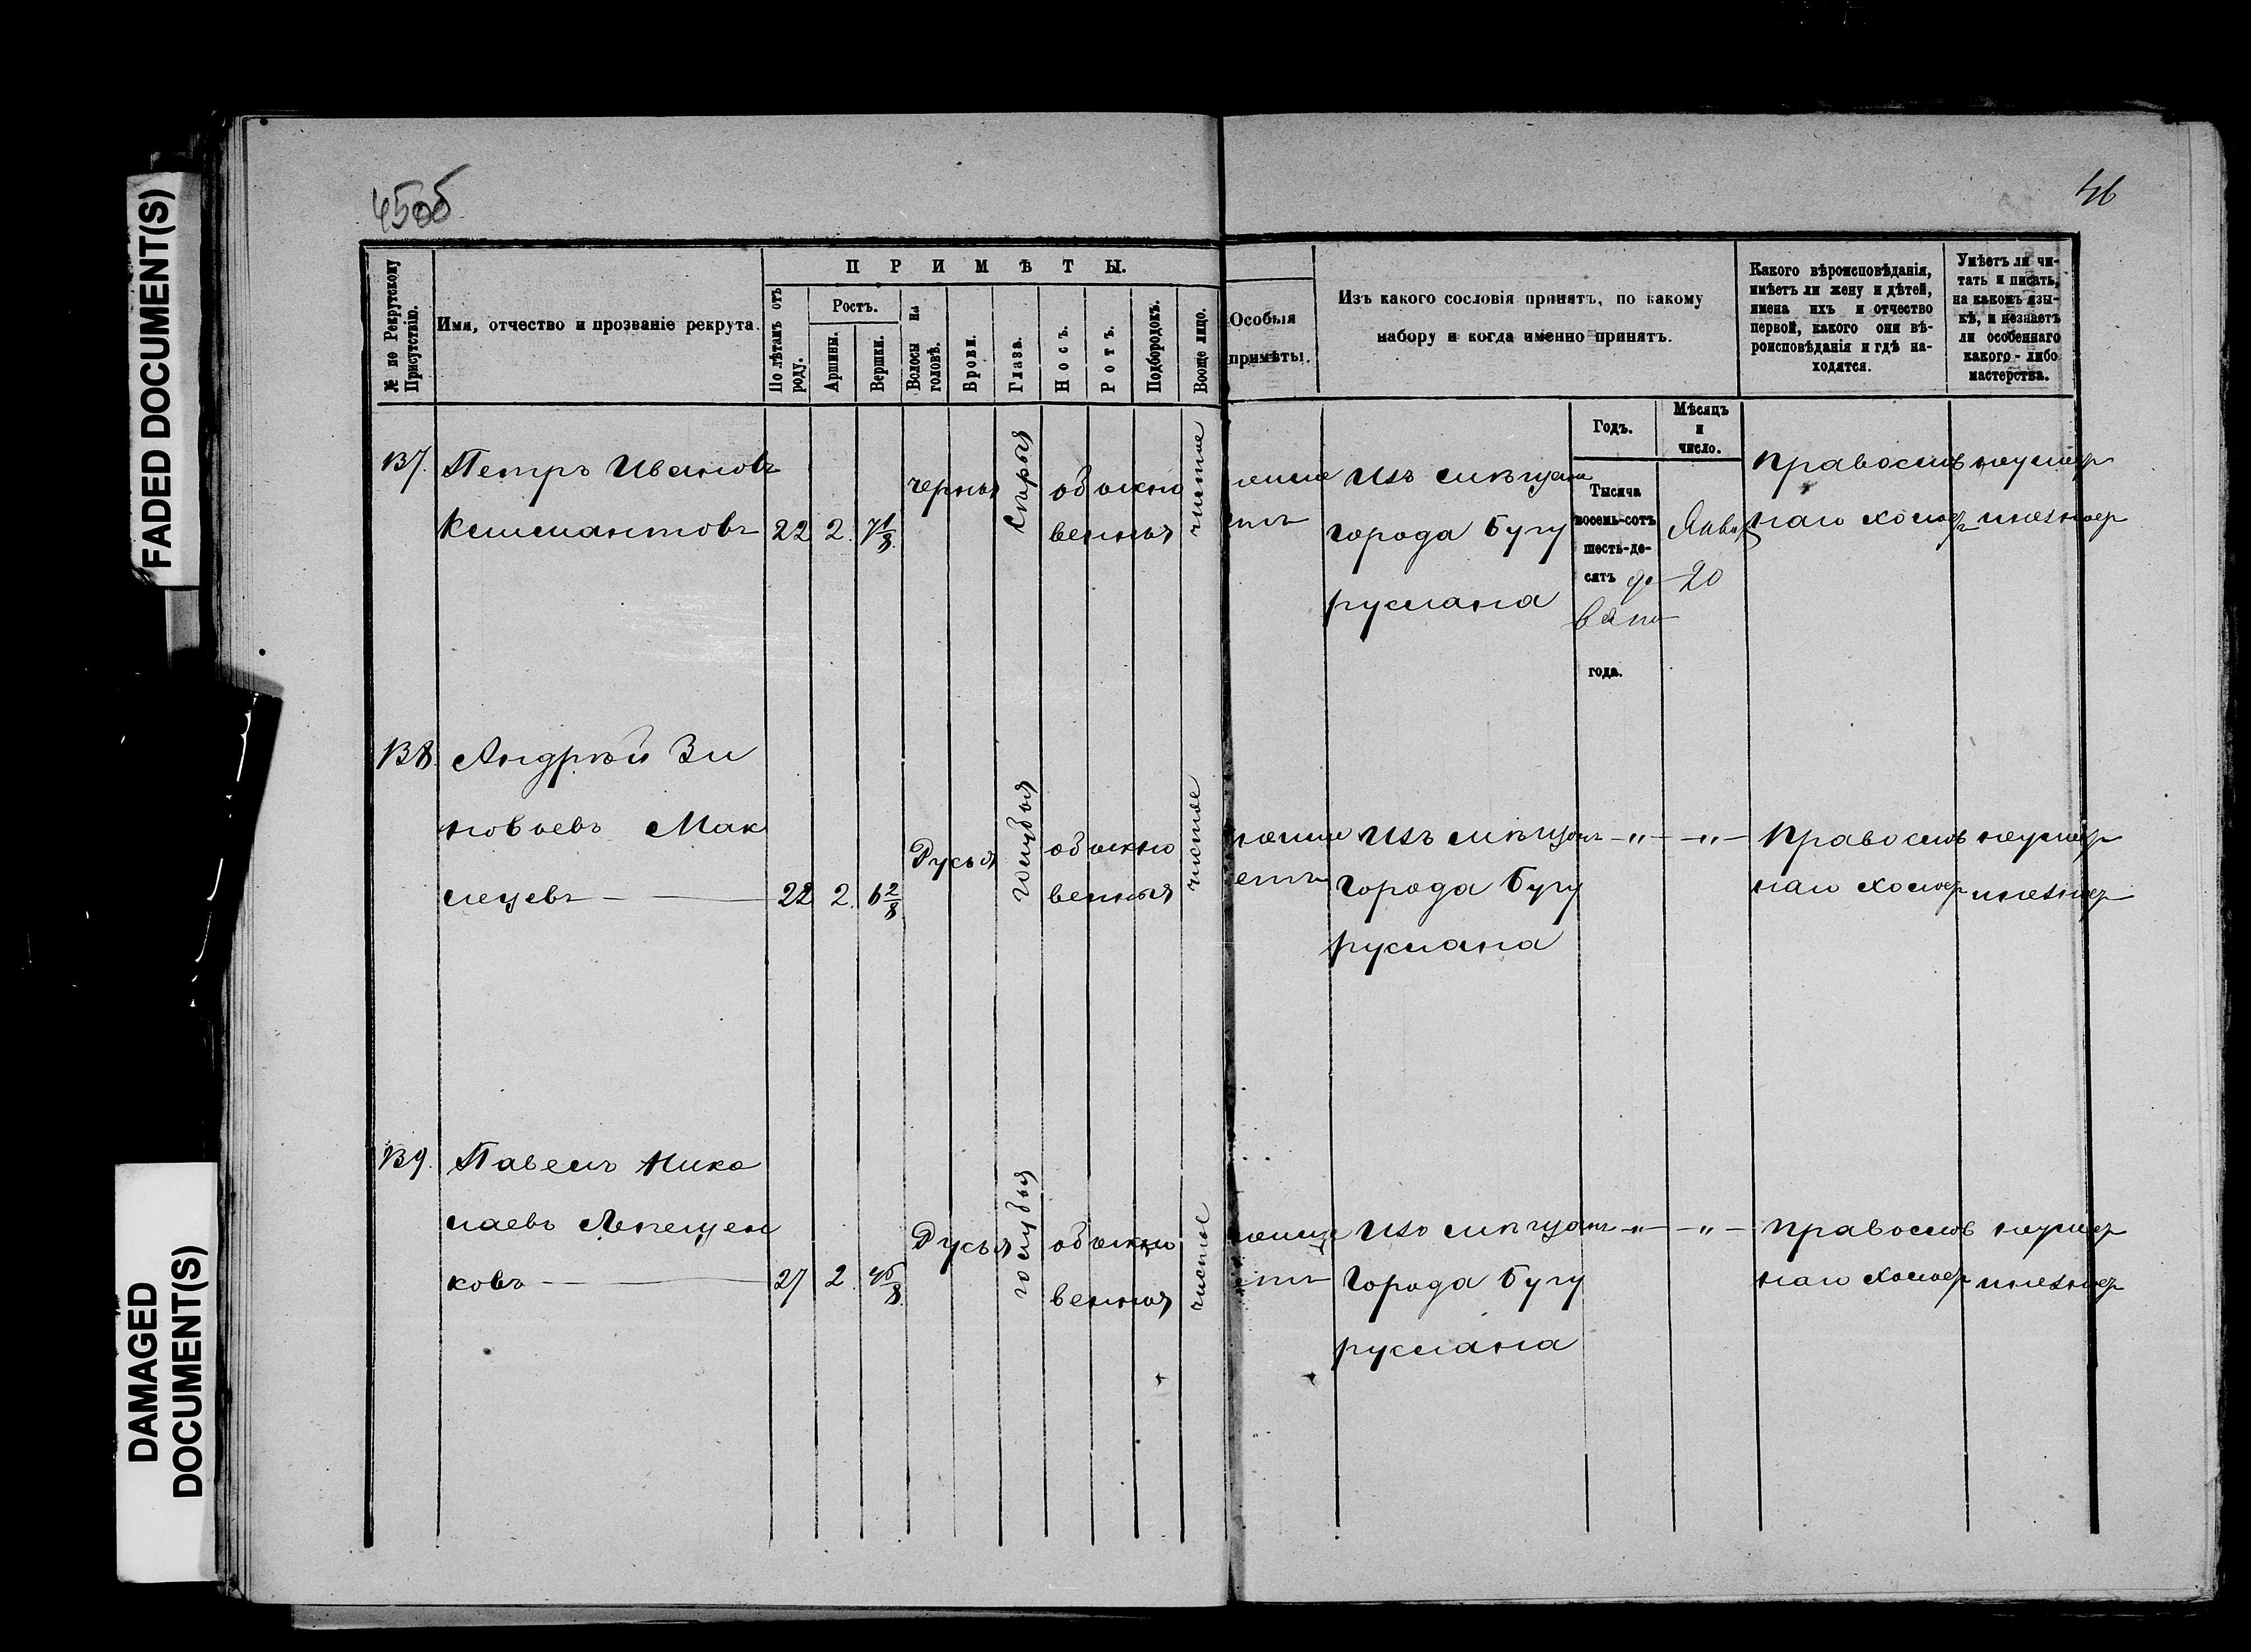 FADED DOCUMENT(S)
DAMAGED
DOCUMENT(S)
45об
46
№ по Рекрутскому Присутствію.
Имя, отчество и прозваніе рекрута.
ПРИМѢТЫ.
По лѣтамъ отъ роду.
Ростъ.
Аршины.
Вершки.
Волосы на головѣ.
Брови.
Глаза.
Носъ.
Ротъ.
Подбородокъ.
Вооще лицо.
Особыя
примѣты.
Изъ какого сословія принятъ, по какому
набору и когда именно принятъ.
Какого вѣроисповѣданія,
имѣетъ ли жену и дѣтей,
имена ихъ и отчество
первой, какого они вѣ-
роисповѣданія и гдѣ на-
ходятся.
Умѣетъ ли чи-
тать и писать,
на какомъ язы-
кѣ, и незнаетъ
ли особеннаго
какого-либо
мастерства.
Годъ.
Мѣсяцъ
и
число.
137. Петръ Ивановъ
22 2 7 1/8
черныя
Сѣрыя
обыкно
венныя
чистое
Изъ мѣщанъ
города Бугу
руслана
Тысяча
восемь-сотъ
шесть-де-
сятъ де
вято
года.
Январ
20
Православ
наго холост
неумѣет
138. Андрѣй Зи
новьевъ Мак
22 2. 6 2/8
Русыя
голубыя
обыкно
венныя
чистое
Изъ мѣщанъ — " — — " —
города Бугу
руслана
Православ
наго холост
неумѣет
139. Павелъ Нико
лаевъ Лепещен
ковъ —
27 2 4 5/8
Русыя
голубыя
обыкно
венныя
чистое
Изъ мѣщанъ — " — — " —
города Бугу
руслана
Православ
наго холост
неумѣет